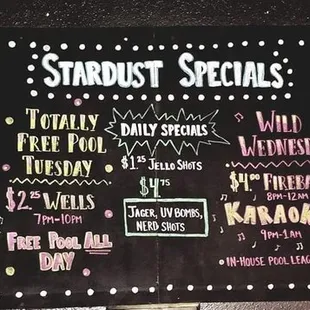 STARDUST SPECIALS
TOTALLY
FREE POOL
TUESDAY
$2.25 WELLS
7PM-10PM
FREE POOL ALL
DAY
DAILY SPECIALS
$1.25 JELLO SHOTS
$4.75
JAGER, UV BOMBS,
NERD SHOTS
WILD
WEDNES
$4.00 FIREBA
8PM-12AM
KARAOK
9PM-1AM
IN-HOUSE POOL LEAG